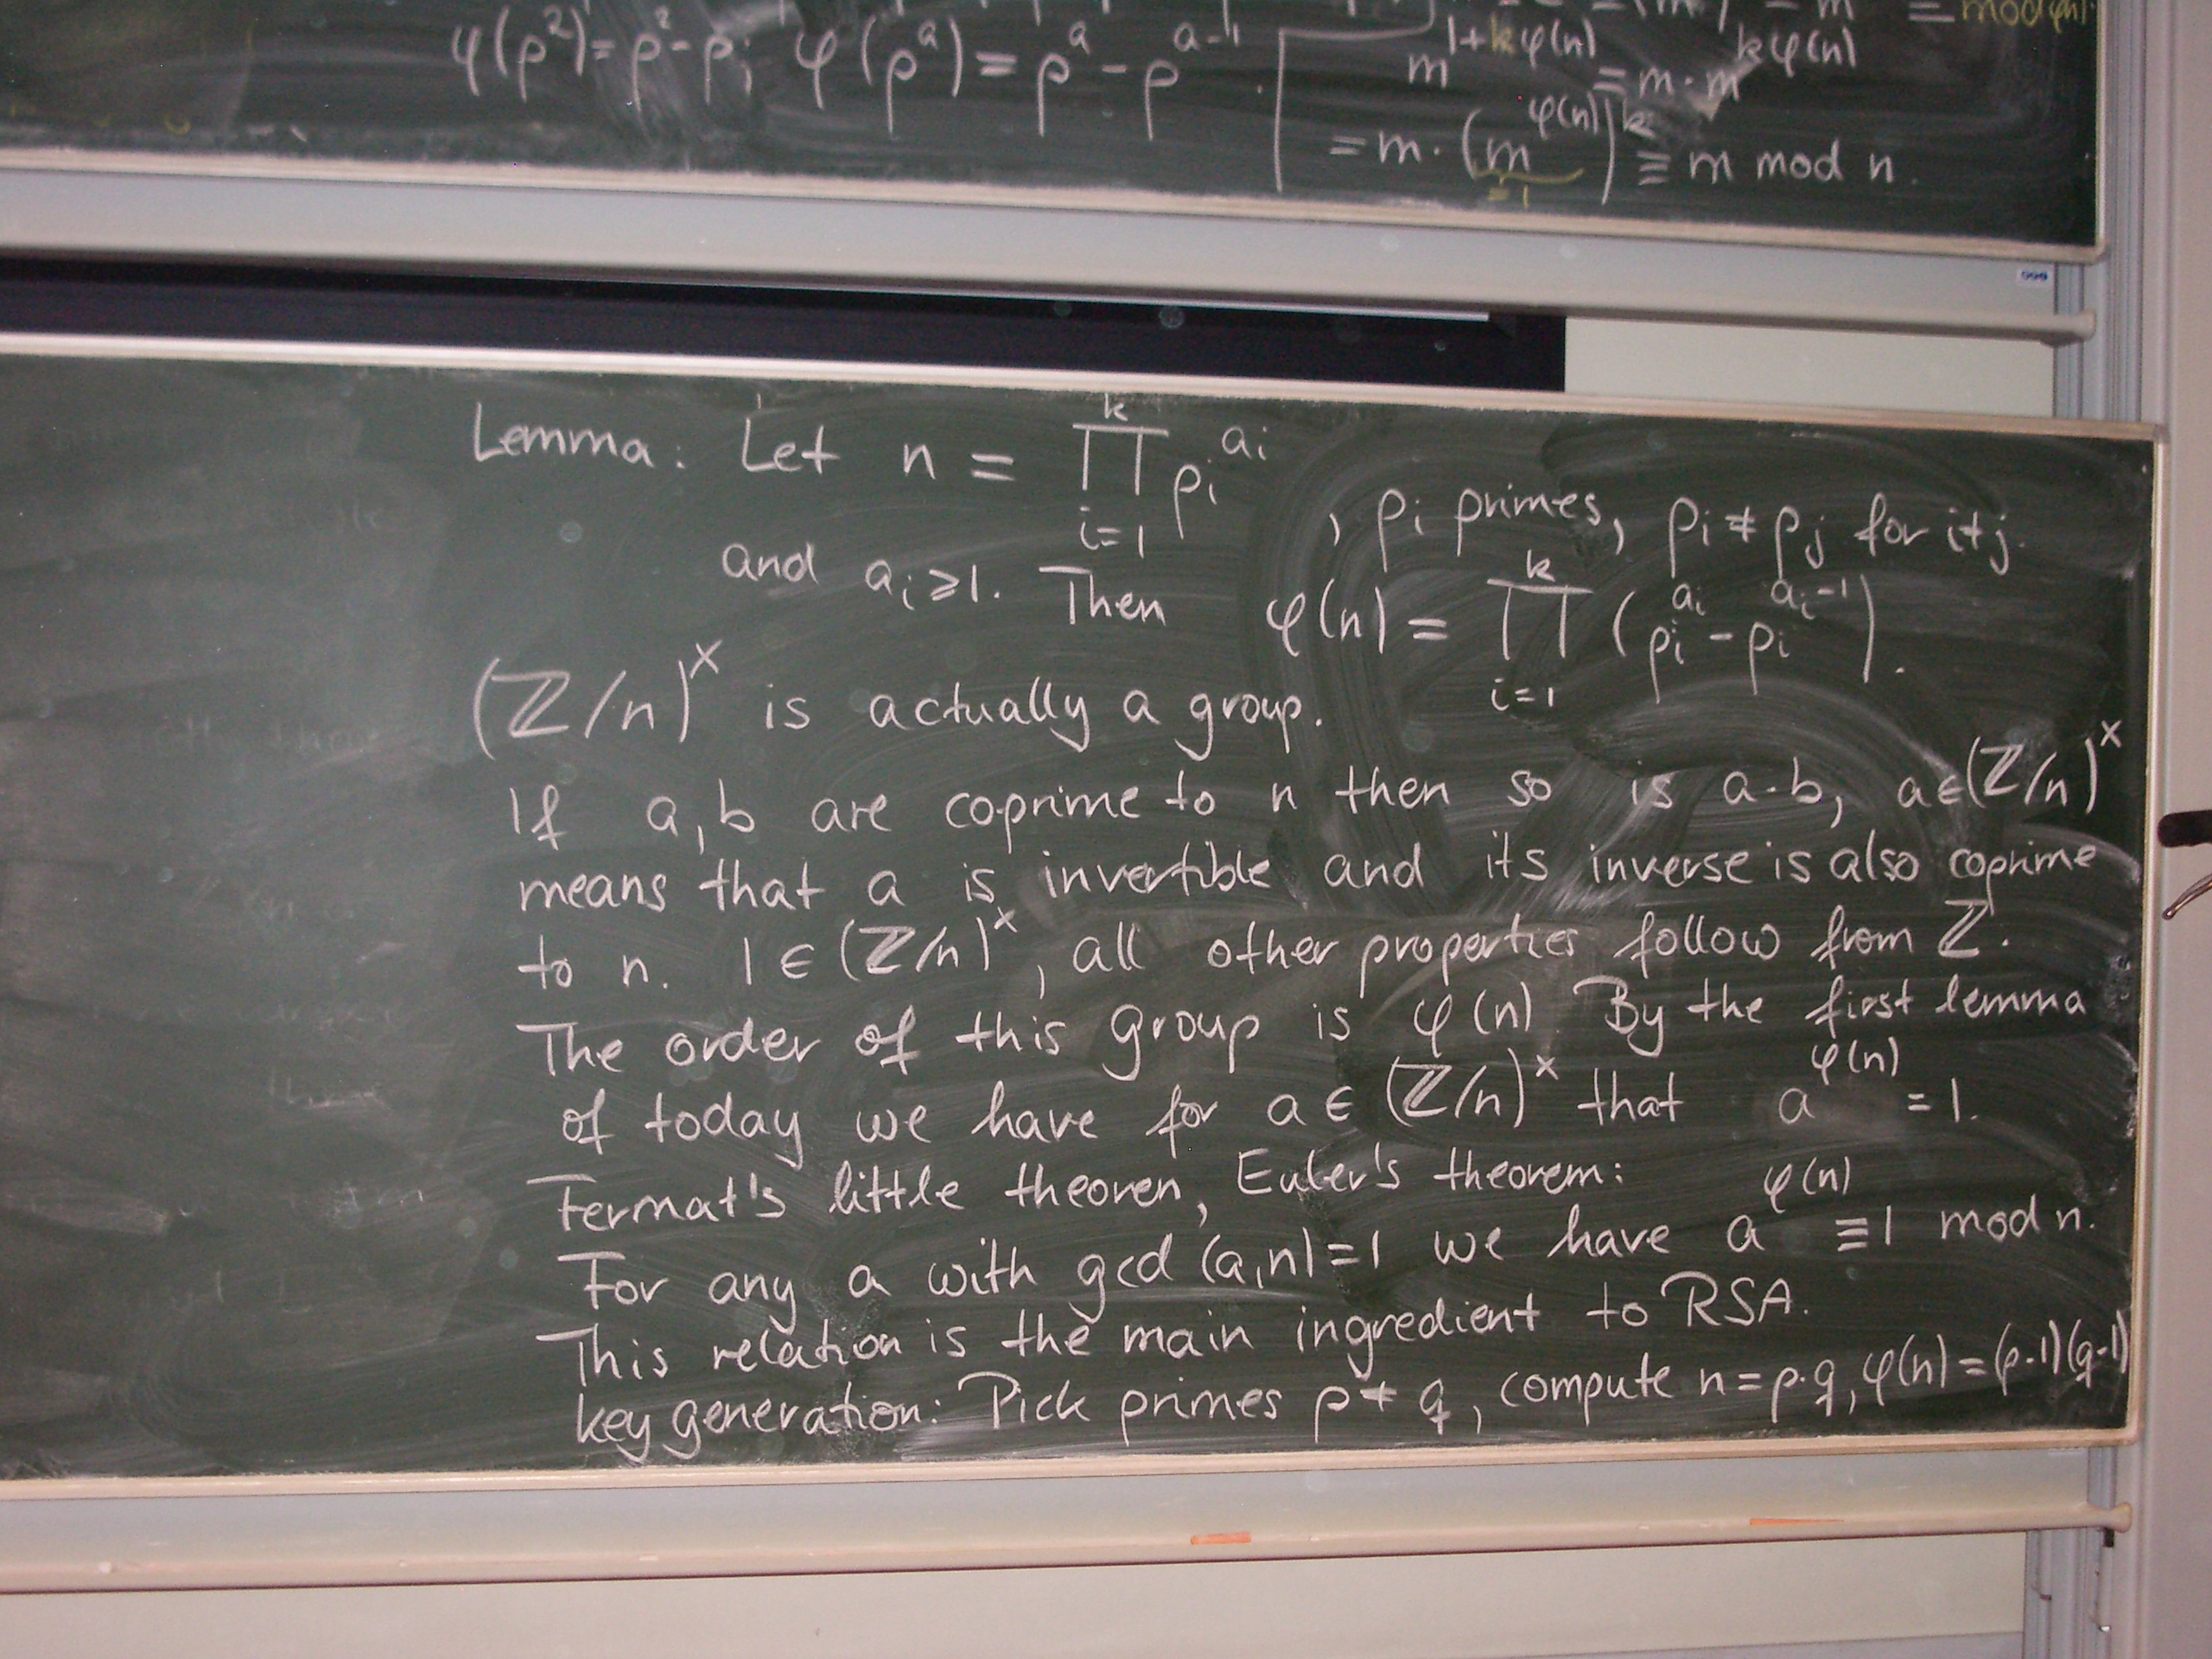 = m
≡ mod φ(n).
φ(p²)=p²-p; φ(p^a) = p^a - p^{a-1}
m^{1+kφ(n)} = m·m^{kφ(n)}
= m·(m^{φ(n)})^k ≡ m mod n.
=1
Lemma: Let n = ∏_{i=1}^{k} p_i^{a_i}, p_i primes, p_i ≠ p_j for i≠j.
and a_i ≥ 1. Then φ(n) = ∏_{i=1}^{k} (p_i^{a_i} - p_i^{a_i-1}).
(ℤ/n)^× is actually a group.
If a,b are coprime to n then so is a·b, a∈(ℤ/n)^×
means that a is invertible and its inverse is also coprime
to n. 1 ∈ (ℤ/n)^×, all other properties follow from ℤ.
The order of this group is φ(n) By the first lemma
of today we have for a ∈ (ℤ/n)^× that a^{φ(n)} = 1.
Fermat's little theoren, Euler's theorem:
For any a with gcd (a,n)=1 we have a^{φ(n)} ≡ 1 mod n.
This relation is the main ingredient to RSA.
key generation: Pick primes p ≠ q, compute n=p·q, φ(n)=(p-1)(q-1)